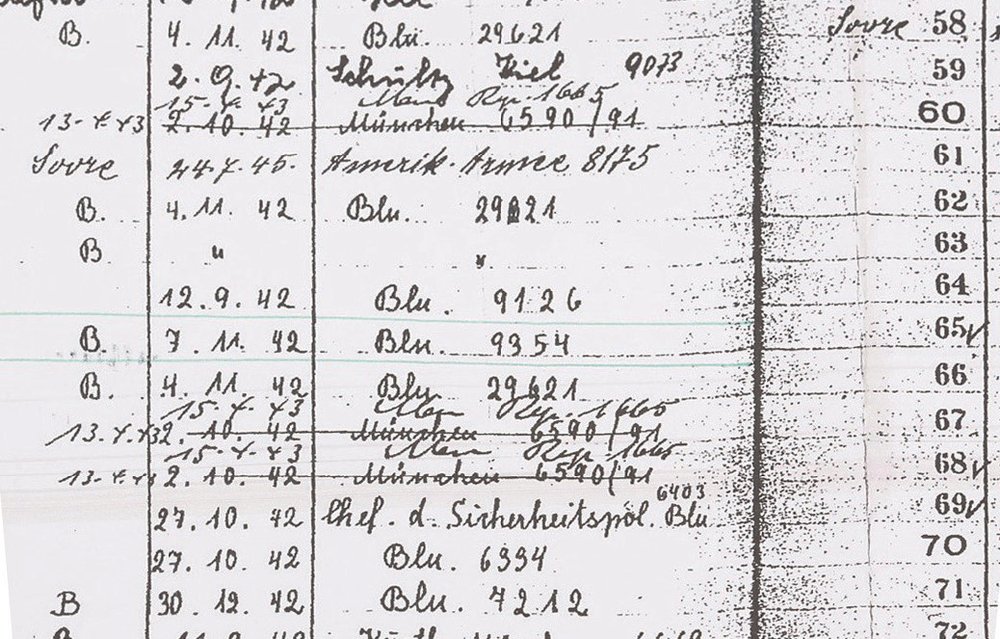 B. 4. 11. 42 Blu. 29621 Sovre 58
2. 9. 42 Schultz Kiel 9073 59
15. 4. 43 Rep. 1665
13. 4. 43 2. 10. 42 München 6590/91 60
Sovre 24. 7. 45. Amerik. Armee 8175 61
B. 4. 11. 42 Blu. 29621 62
B " " 63
12. 9. 42 Blu. 9126 64
B. 7. 11. 42 Blu. 9354 65 ✓
B. 4. 11. 42 Blu. 29621 66
15. 4. 43 Rep. 1665
13. 4. 43 2. 10. 42 München 6590/91 67
15. 4. 43 Rep. 1665
13. 4. 43 2. 10. 42 München 6590/91 68 ✓
6403
27. 10. 42 Chef. d. Sicherheitspol. Blu 69 ✓
27. 10. 42 Blu. 6994 70
B 30. 12. 42 Blu. 7212 71
72